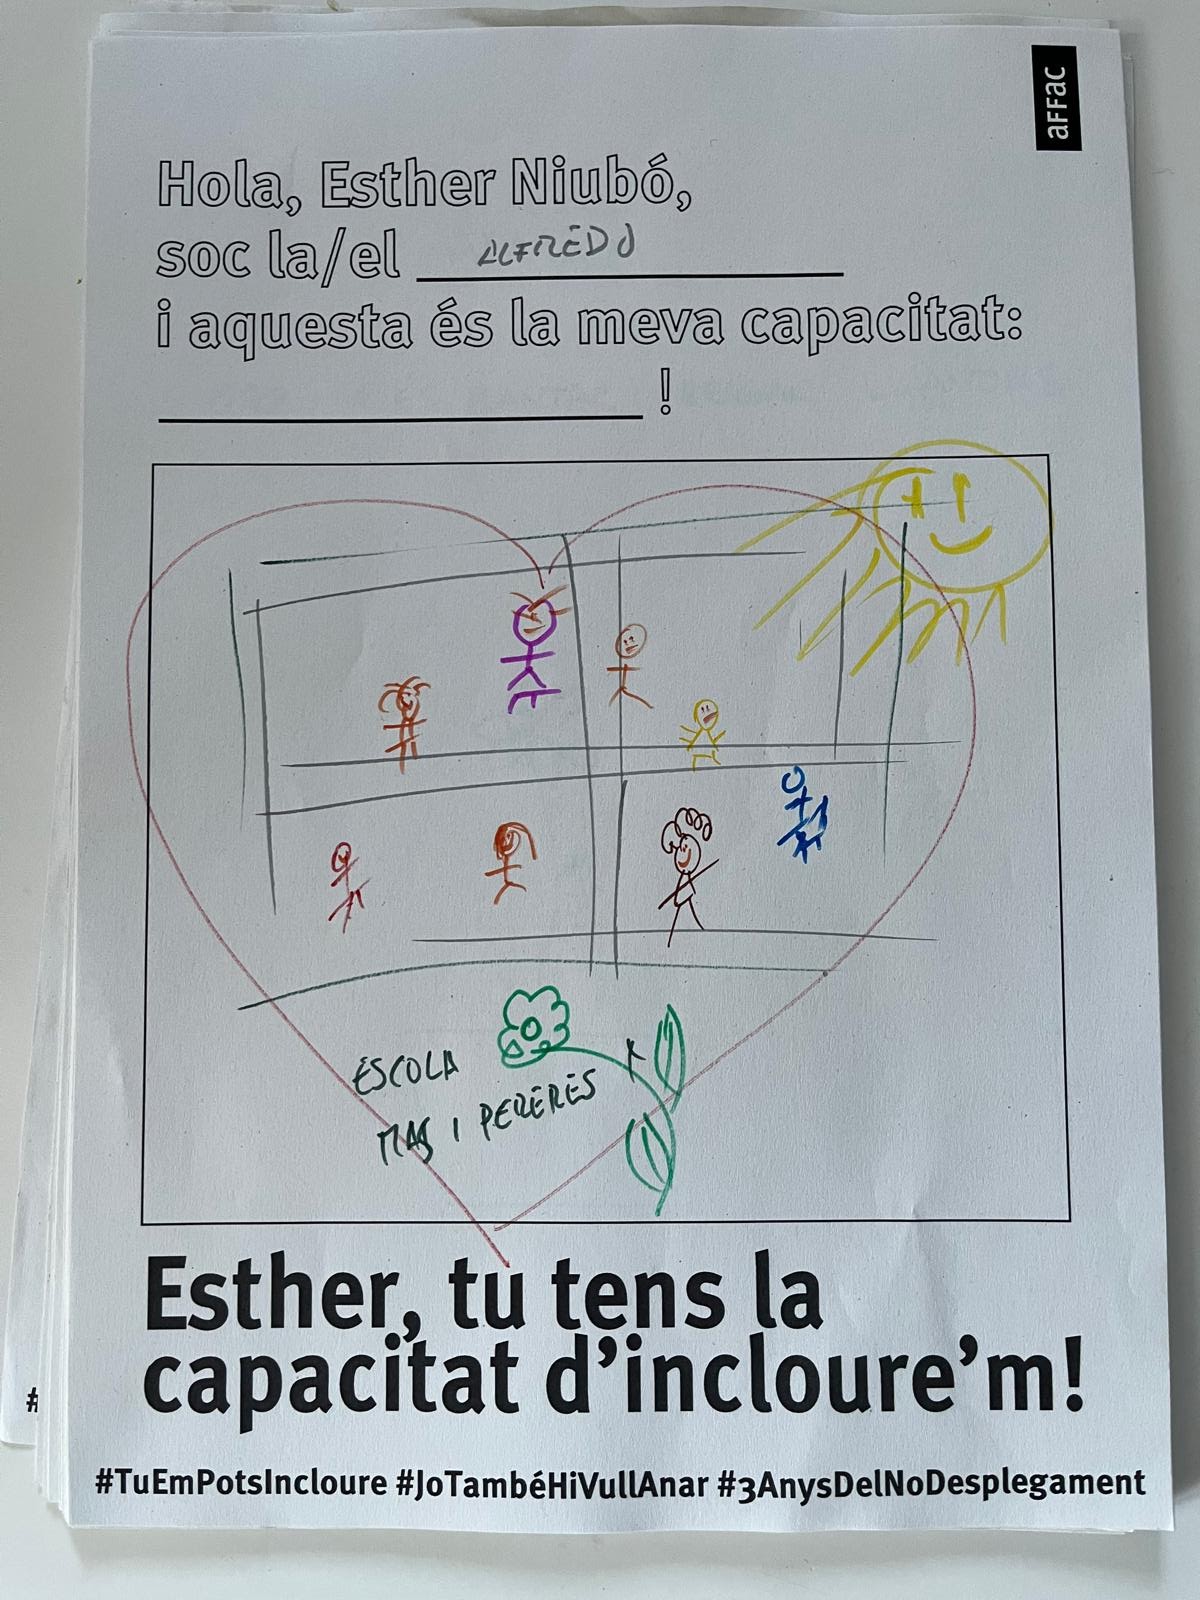 aFFac
Hola, Esther Niubó,
soc la/el ALFREDO
i aquesta és la meva capacitat:
!
ESCOLA
MAS I PERERES
Esther, tu tens la
capacitat d’incloure’m!
#
#TuEmPotsIncloure #JoTambéHiVullAnar #3AnysDelNoDesplegament